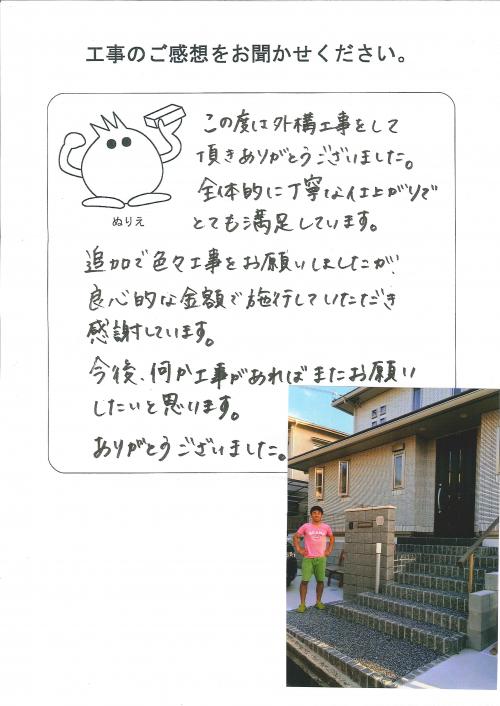 工事のご感想をお聞かせください。
この度は外構工事をして
頂きありがとうございました。
全体的に丁寧な仕上がりで
とても満足しています。
ぬりえ
追加で色々工事をお願いしましたが、
良心的な金額で施行していただき
感謝しています。
今後、何か工事があればまたお願い
したいと思います。
ありがとうございました。